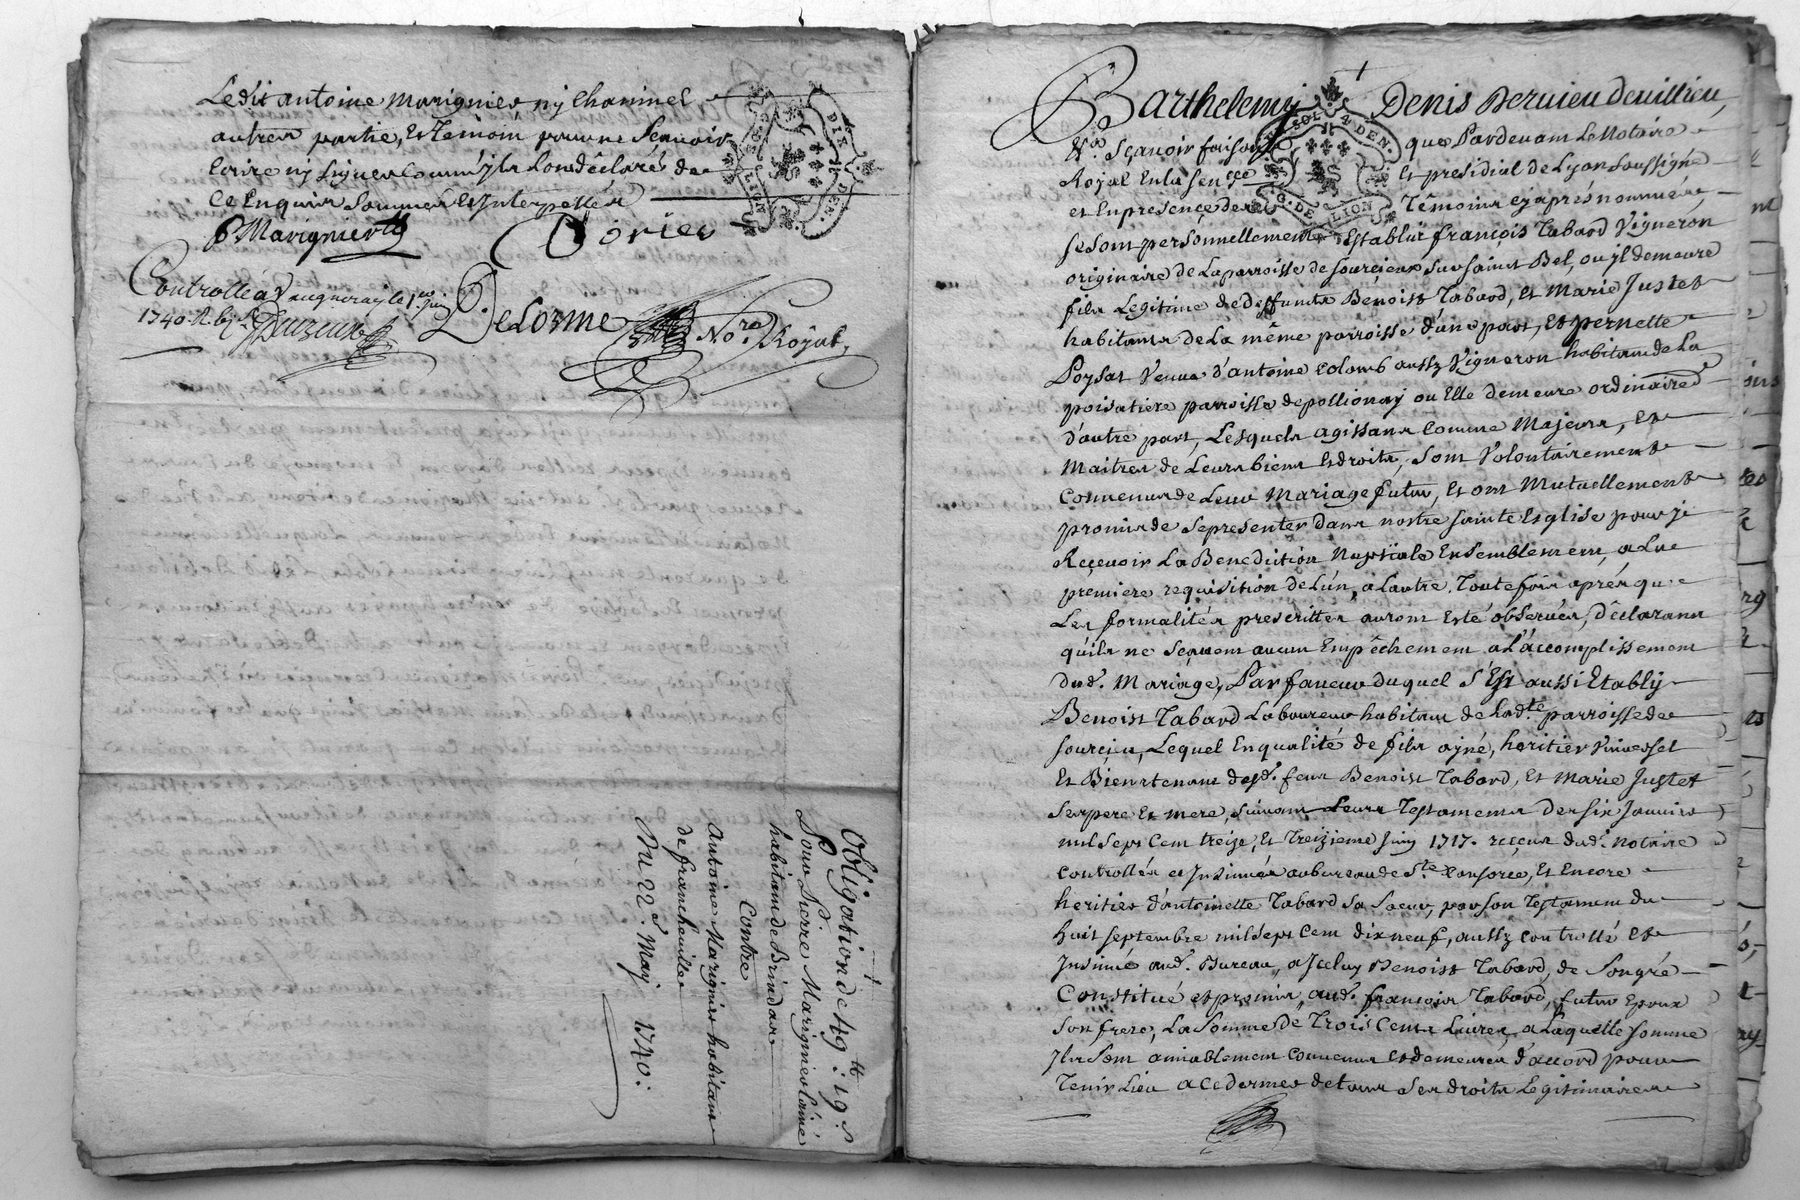 Ledit antoine Marignier ny Chaninel
autres partie, Et temoin pour ne Scavoir
Ecrire ny Signer Comm' jls Lon déclaré de
Ce Enquis Sommés Et Interpellés
P Marignier Dorier
Controllé a Vaugneray le 1er juin
1740. R. 
DeLorme No.re Royal,
Obligation de 49tt: 19s
Pour Pierre Marignier lainé
habitant de Brindas
Contre
Antoine Marignier habitant
de francheville
Du 22e May 1740:
Barthelemy Denis Deruieu deuillieu,
Sçauoir faisons que Pardeuant Le Notaire
Royal En la Sen.ссe Et presidial de Lyon Soussigné
et En presence des Témoins cy après nommés
se sont personnellement Establis françois Tabard Vigneron
originaire de La parroisse de Sourcieux Sur Saint Bel, ou jl demeure
fils Legitime de deffunts Benoist Tabard, et Marie Justet
habitants de La même parroisse d'une part, Et pernette
Poysat Veuue d'antoine Colomb aussy Vigneron habitant de La
poisatiere parroisse de pollionay ou Elle demeure ordinaire.t
d'autre part, Lesquels agissans Comme Majeurs, Et
Maitres de Leurs biens Et droits, Sont Volontairement
Conuenus de Leur Mariage futur, Et ont Mutuellement
promis de Se presenter dans nostre Sainte Esglise pour ji
Reçeuoir La Benediction Nuptiale Ensemblement, a La
premiere requisition de L'un, a Lautre. Toutefois après que
Les formalités prescrittes auront Esté observées, déclarans
qu'ils ne Sçauent aucun Empêchement a L'accomplissement
dud. Mariage, Par faueur duquel S'Est aussi Etably
Benoist Tabard Laboureur habitant de Lad.te parroisse de
Sourcieu, Lequel En qualité de fils ayné, heritier Vniuersel
Et Bientenant desd. feux Benoist Tabard, Et Marie Justet
Ses pere Et mere, Suivant Leurs Testaments des Six Januier
mil Sept Cent treize, Et Treizieme Juin 1717. reçeus dud. Notaire
Controllés et Jnsinués au bureau de Ste Consorce, Et Encore
heritier d'antoinette Tabard Sa Saeur, par Son Testament du
huit Septembre mil Sept Cent dix neuf, aussy Controllé Et
Jnsinué aud. Bureau, a Jceluy Benoist Tabard, de Son gré
Constitué et promis aud. françois Tabard, futur Epoux
Son frere, La Somme de Trois Cents Liures, a Laquelle Somme
Jls Sont amiablement Conuenus Et demeurés d'accord pour
Tenir Lieu a Ce dernier de tous Ses droits Legitimaires